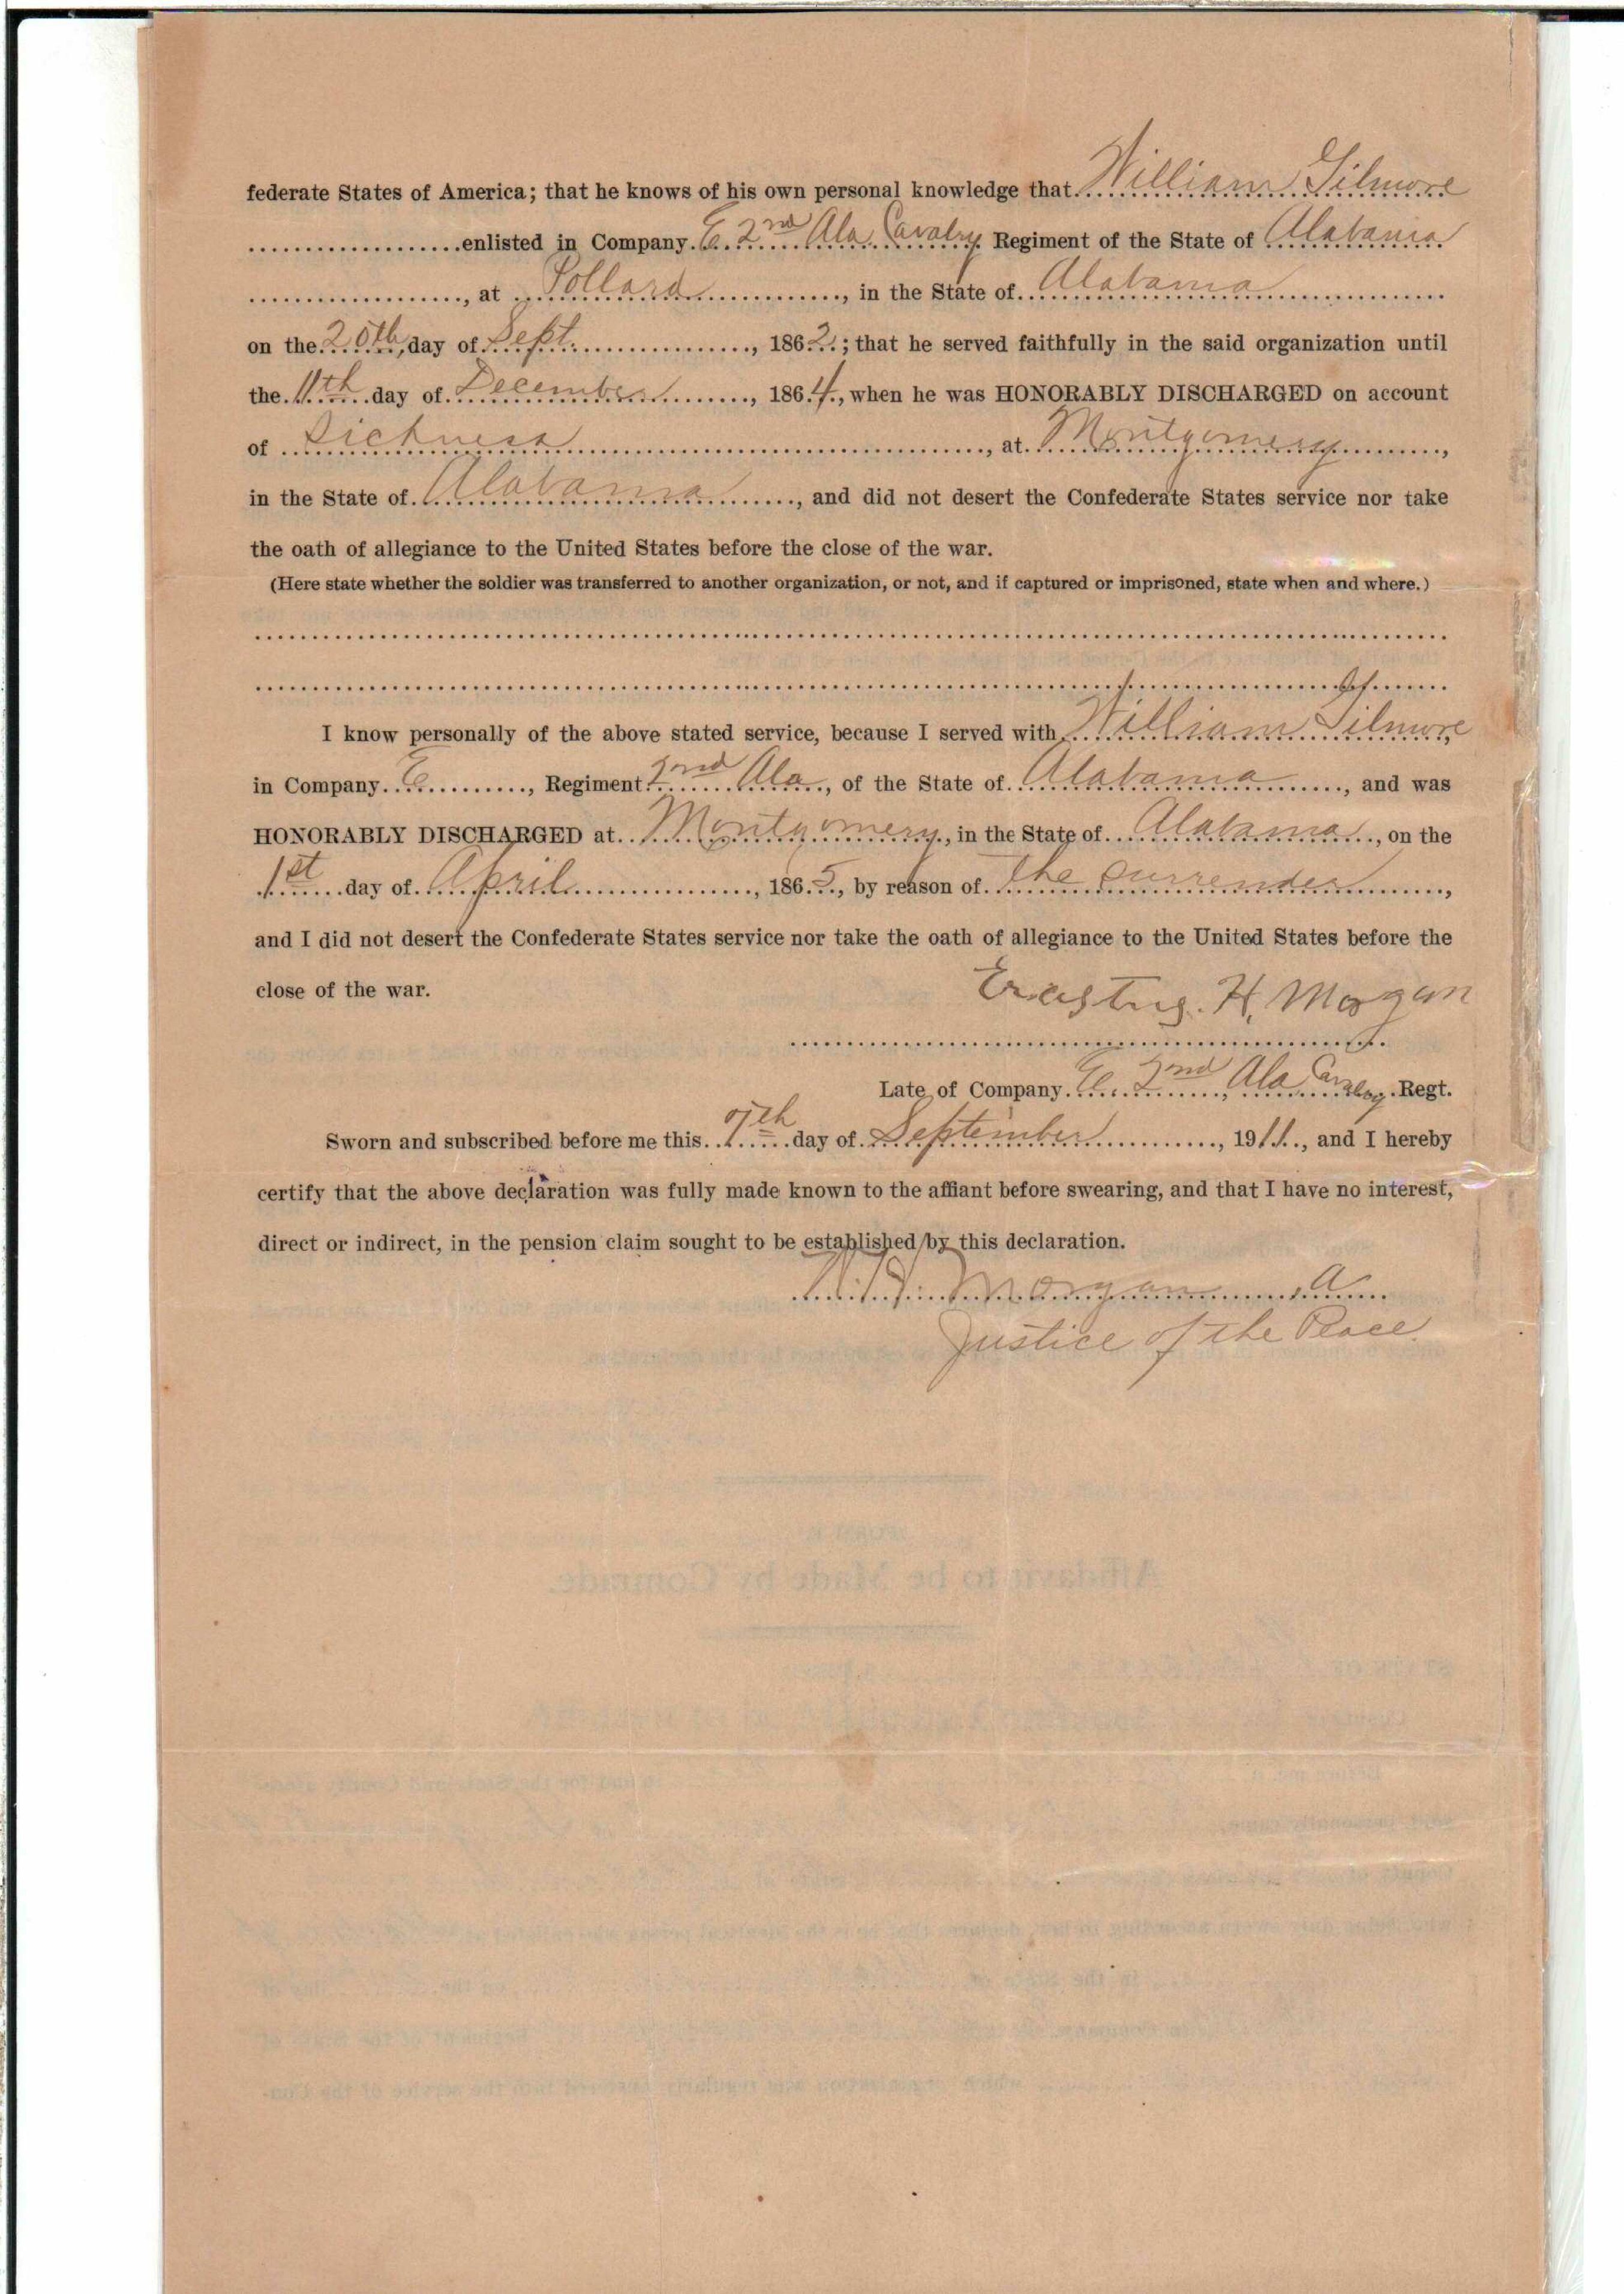 federate States of America; that he knows of his own personal knowledge that William Gilmore
enlisted in Company E. 2nd Ala Cavalry Regiment of the State of Alabama
, at Pollard, in the State of Alabama
on the 20th, day of Sept., 1862; that he served faithfully in the said organization until
the 11th day of December, 1864, when he was HONORABLY DISCHARGED on account
of Sickness, at Montgomery,
in the State of Alabama, and did not desert the Confederate States service nor take
the oath of allegiance to the United States before the close of the war.
(Here state whether the soldier was transferred to another organization, or not, and if captured or imprisoned, state when and where.)
I know personally of the above stated service, because I served with William Gilmore
in Company E, Regiment 2nd Ala, of the State of Alabama, and was
HONORABLY DISCHARGED at Montgomery, in the State of Alabama, on the
1st day of April, 1865, by reason of the surrender,
and I did not desert the Confederate States service nor take the oath of allegiance to the United States before the
close of the war.
Erastus. H. Morgan
Late of Company E. 2nd, Ala Cavalry Regt.
Sworn and subscribed before me this 7th day of September, 1911, and I hereby
certify that the above declaration was fully made known to the affiant before swearing, and that I have no interest,
direct or indirect, in the pension claim sought to be established by this declaration.
Morgan, a
Justice of the Peace
Affidavit to be Made by Comrade.